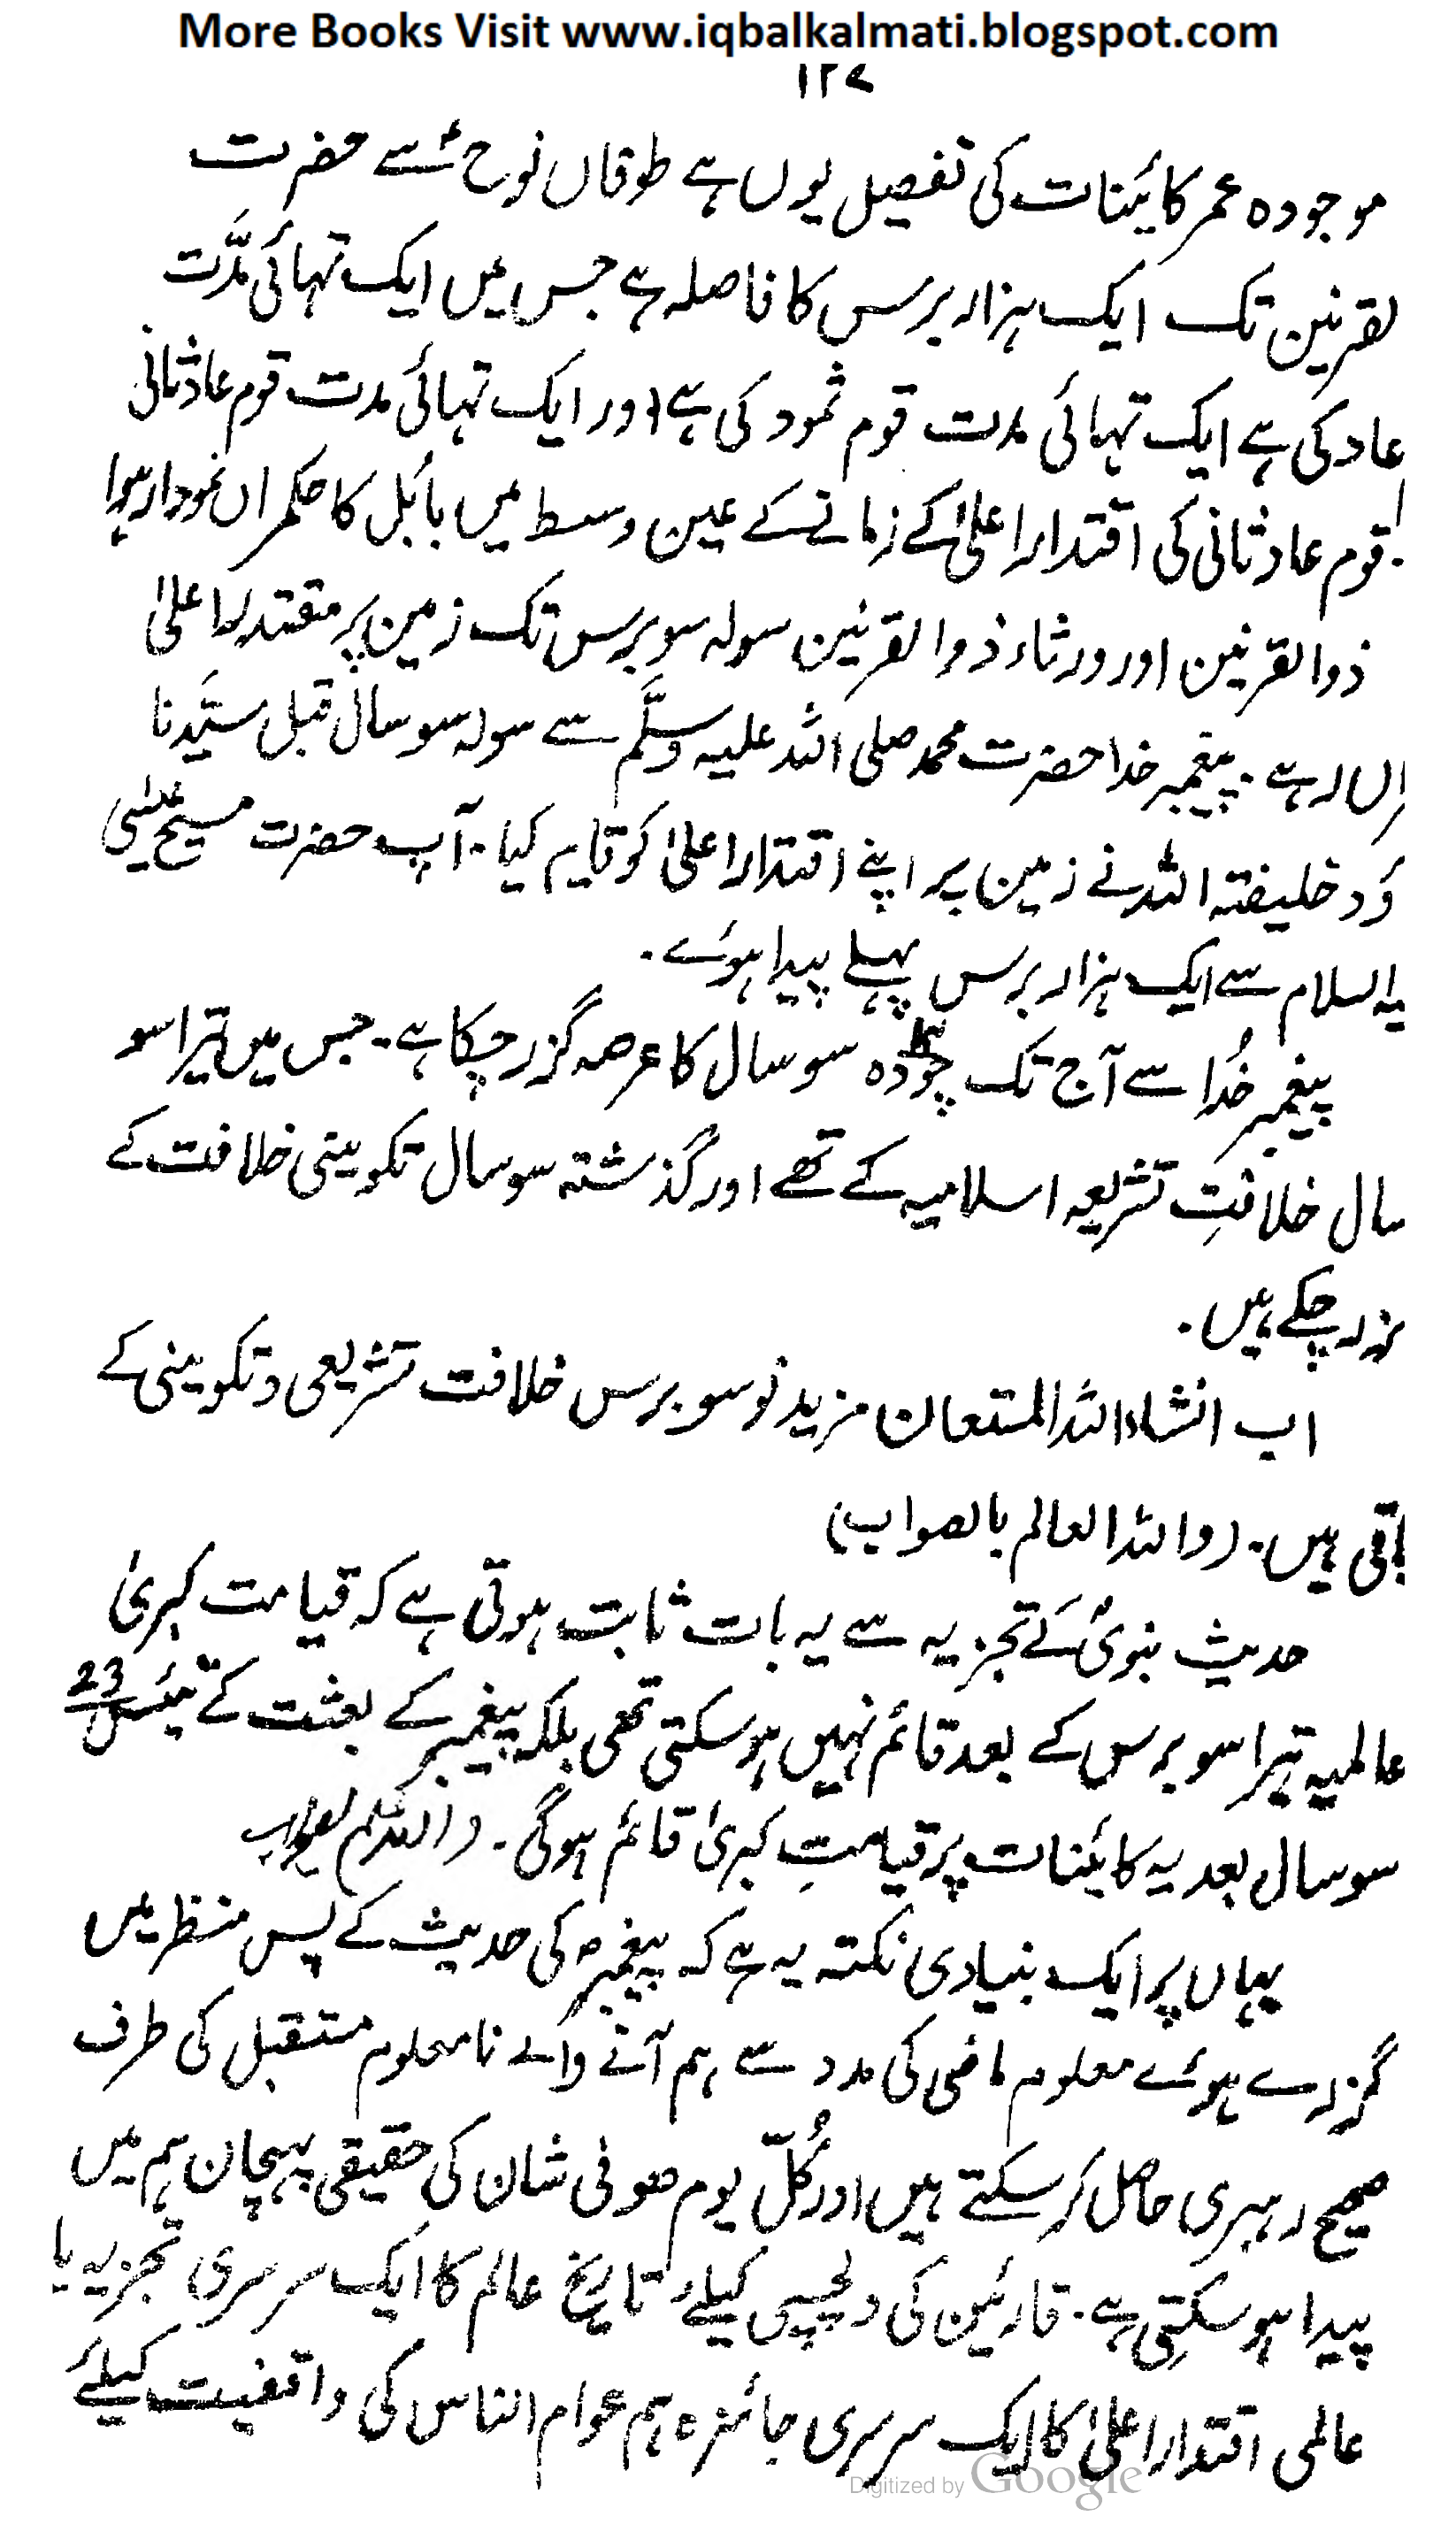 More Books Visit www.iqbalkalmati.blogspot.com
۱۲۷
موجودہ عمر کائینات کی تفصیل یوں ہے طوفاں نوحؑ سے حضرت
لقرنین تک ایک ہزار برس کا فاصلہ ہے جس میں ایک تہائی مدّت
عاد کی ہے ایک تہائی مدت قوم ثمود کی ہے اور ایک تہائی مدت قوم عاد ثانی
. قوم عاد ثانی کی اقتدار اعلیٰ کے زمانے کے عین وسط میں بائبل کا حکمراں نمودار ہوا
ذوالقرنین اور ورثاء ذوالقرنین سولہ سو برس تک زمین پر مقتدر اعلیٰ
راں رہے. پیغمبر خدا حضرت محمد صلی اللہ علیہ وسلَّم سے سولہ سو سال قبل سیّدنا
ؤد خلیفتہ اللہ نے زمین پر اپنے اقتدار اعلیٰ کو قایم کیا. آپ حضرت مسیح عیسیٰ
یہ السلام سے ایک ہزار برس پہلے پیدا ہوئے.
پیغمبر خُدا سے آج تک چودہ سو سال کا عرصہ گزر چکا ہے. جس میں تیرا سو
سال خلافتِ تشریعہ اسلامیہ کے تھے اور گذشتہ سو سال تکوینی خلافت کے
زر چکے ہیں.
اب انشاء اللہ المستعان مزید نو سو برس خلافت تشریعی و تکوینی کے
باقی ہیں. (واللہ العالم بالصواب)
حدیث نبویؐ کے تجزیہ سے یہ بات ثابت ہوتی ہے کہ قیامت کبریٰ
عالمیہ تیرا سو برس کے بعد قائم نہیں ہوسکتی تھی بلکہ پیغمبر کے بعثت کے تیئس 23
سو سال بعد یہ کائینات پر قیامتِ کبریٰ قائم ہوگی.
یہاں پر ایک بنیادی نکتہ یہ ہے کہ پیغمبرؐ کی حدیث کے پس منظر میں
گزرے ہوئے معلوم ماضی کی مدد سے ہم آنے والے نامعلوم مستقبل کی طرف
صحیح رہبری حاصل کرسکتے ہیں اور کُلّ یوم ھو فی شان کی حقیقی پہچان ہم میں
پیدا ہوسکتی ہے. قارئین کی دلچسپی کیلئے تاریخ عالم کا ایک سرسری تجزیہ یا
عالمی اقتدار اعلیٰ کا ایک سرسری جائزہ ہم عوام الناس کی واقفیت کیلئے
Digitized by Google